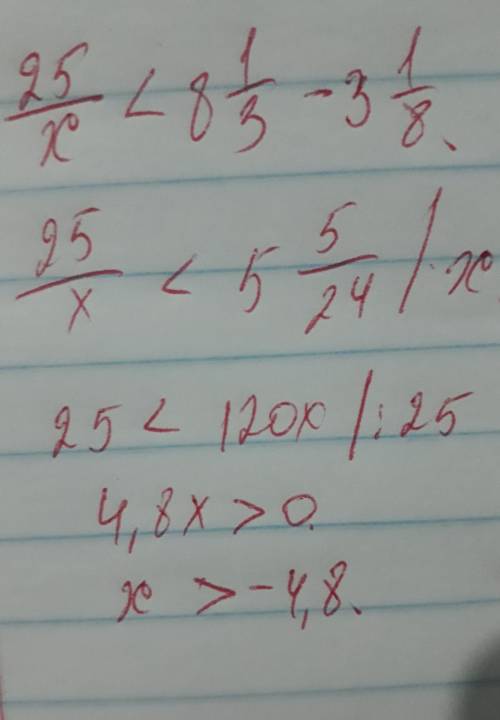 25/x < 8 1/3 - 3 1/8.
25/x < 5 5/24 | · x
25 < 120x | : 25
4,8x > 0.
x > -4,8.